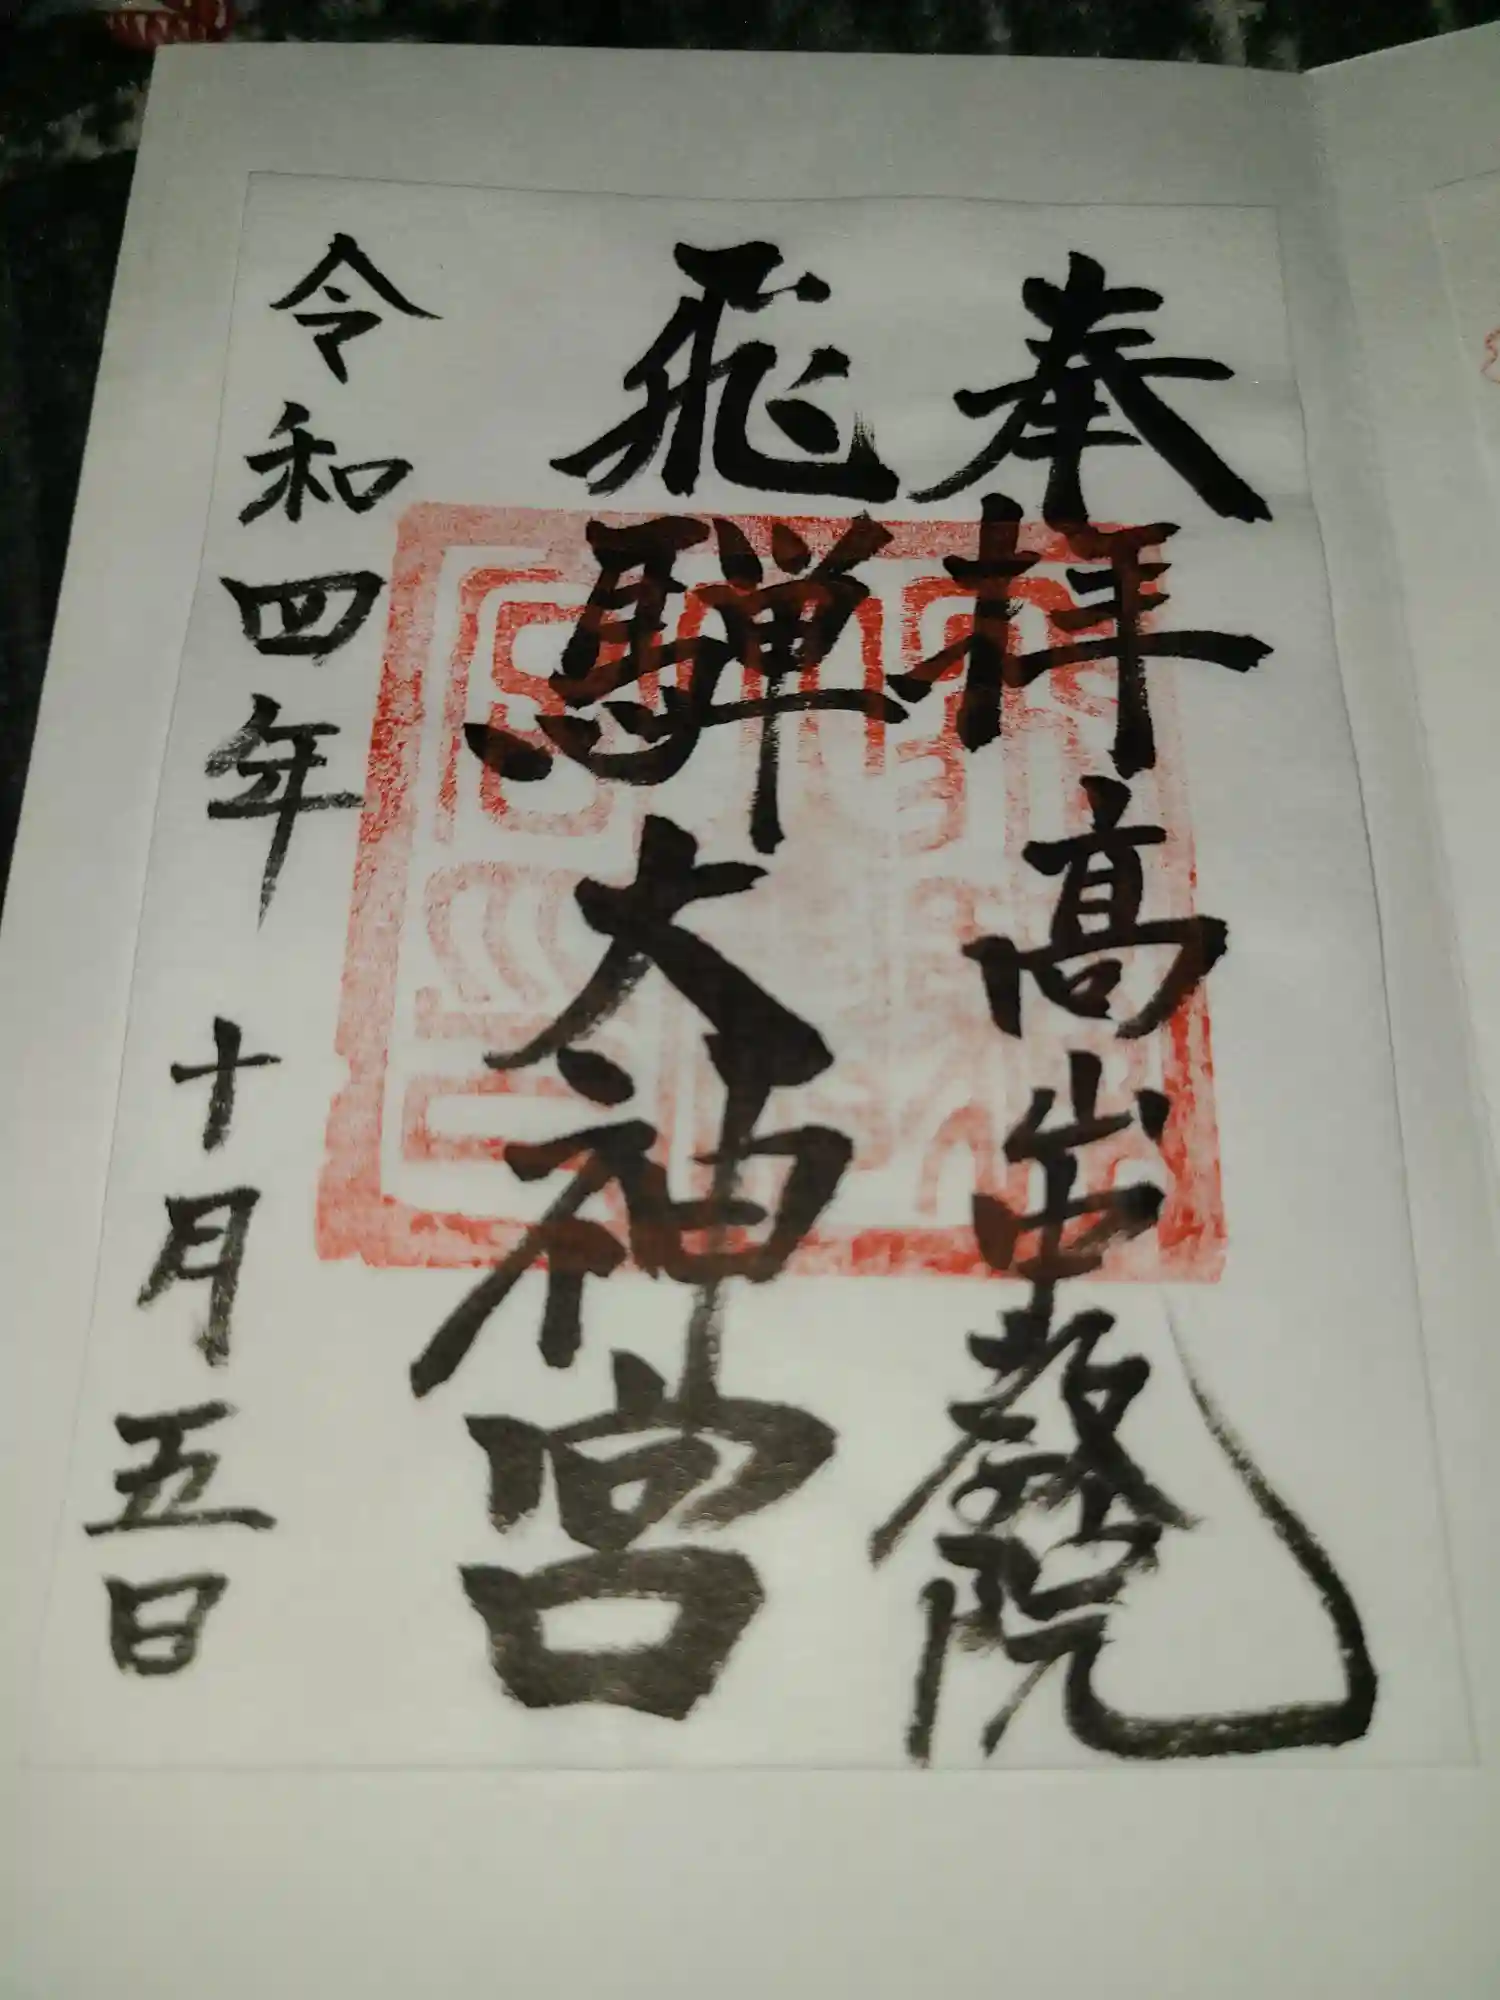 奉拝 高山中教院
飛騨大神宮
令和四年 十月五日